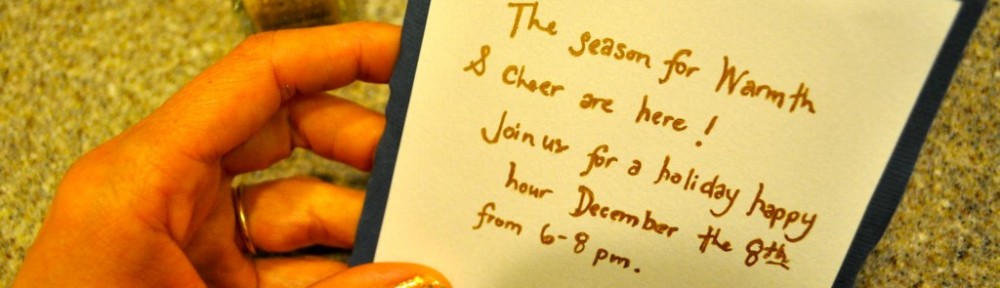 The season for Warmth
& Cheer are here!
Join us for a holiday happy
hour December the 8th
from 6-8 pm.